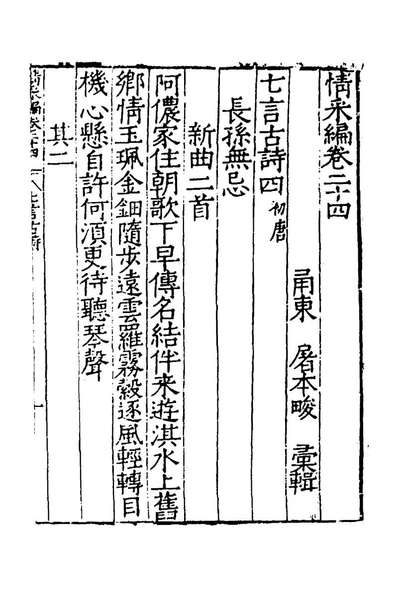 情采編卷二十四
甬東 屠本畯 彙輯
七言古詩四初唐
長孫無忌
新曲二首
阿儂家住朝歌下早傳名結伴来遊淇水上舊
鄉情玉珮金鈿隨步遠雲羅霧縠逐風輕轉目
機心懸自許何湏更待聽琴聲
其二
情采編卷二十四 七言古詩 一